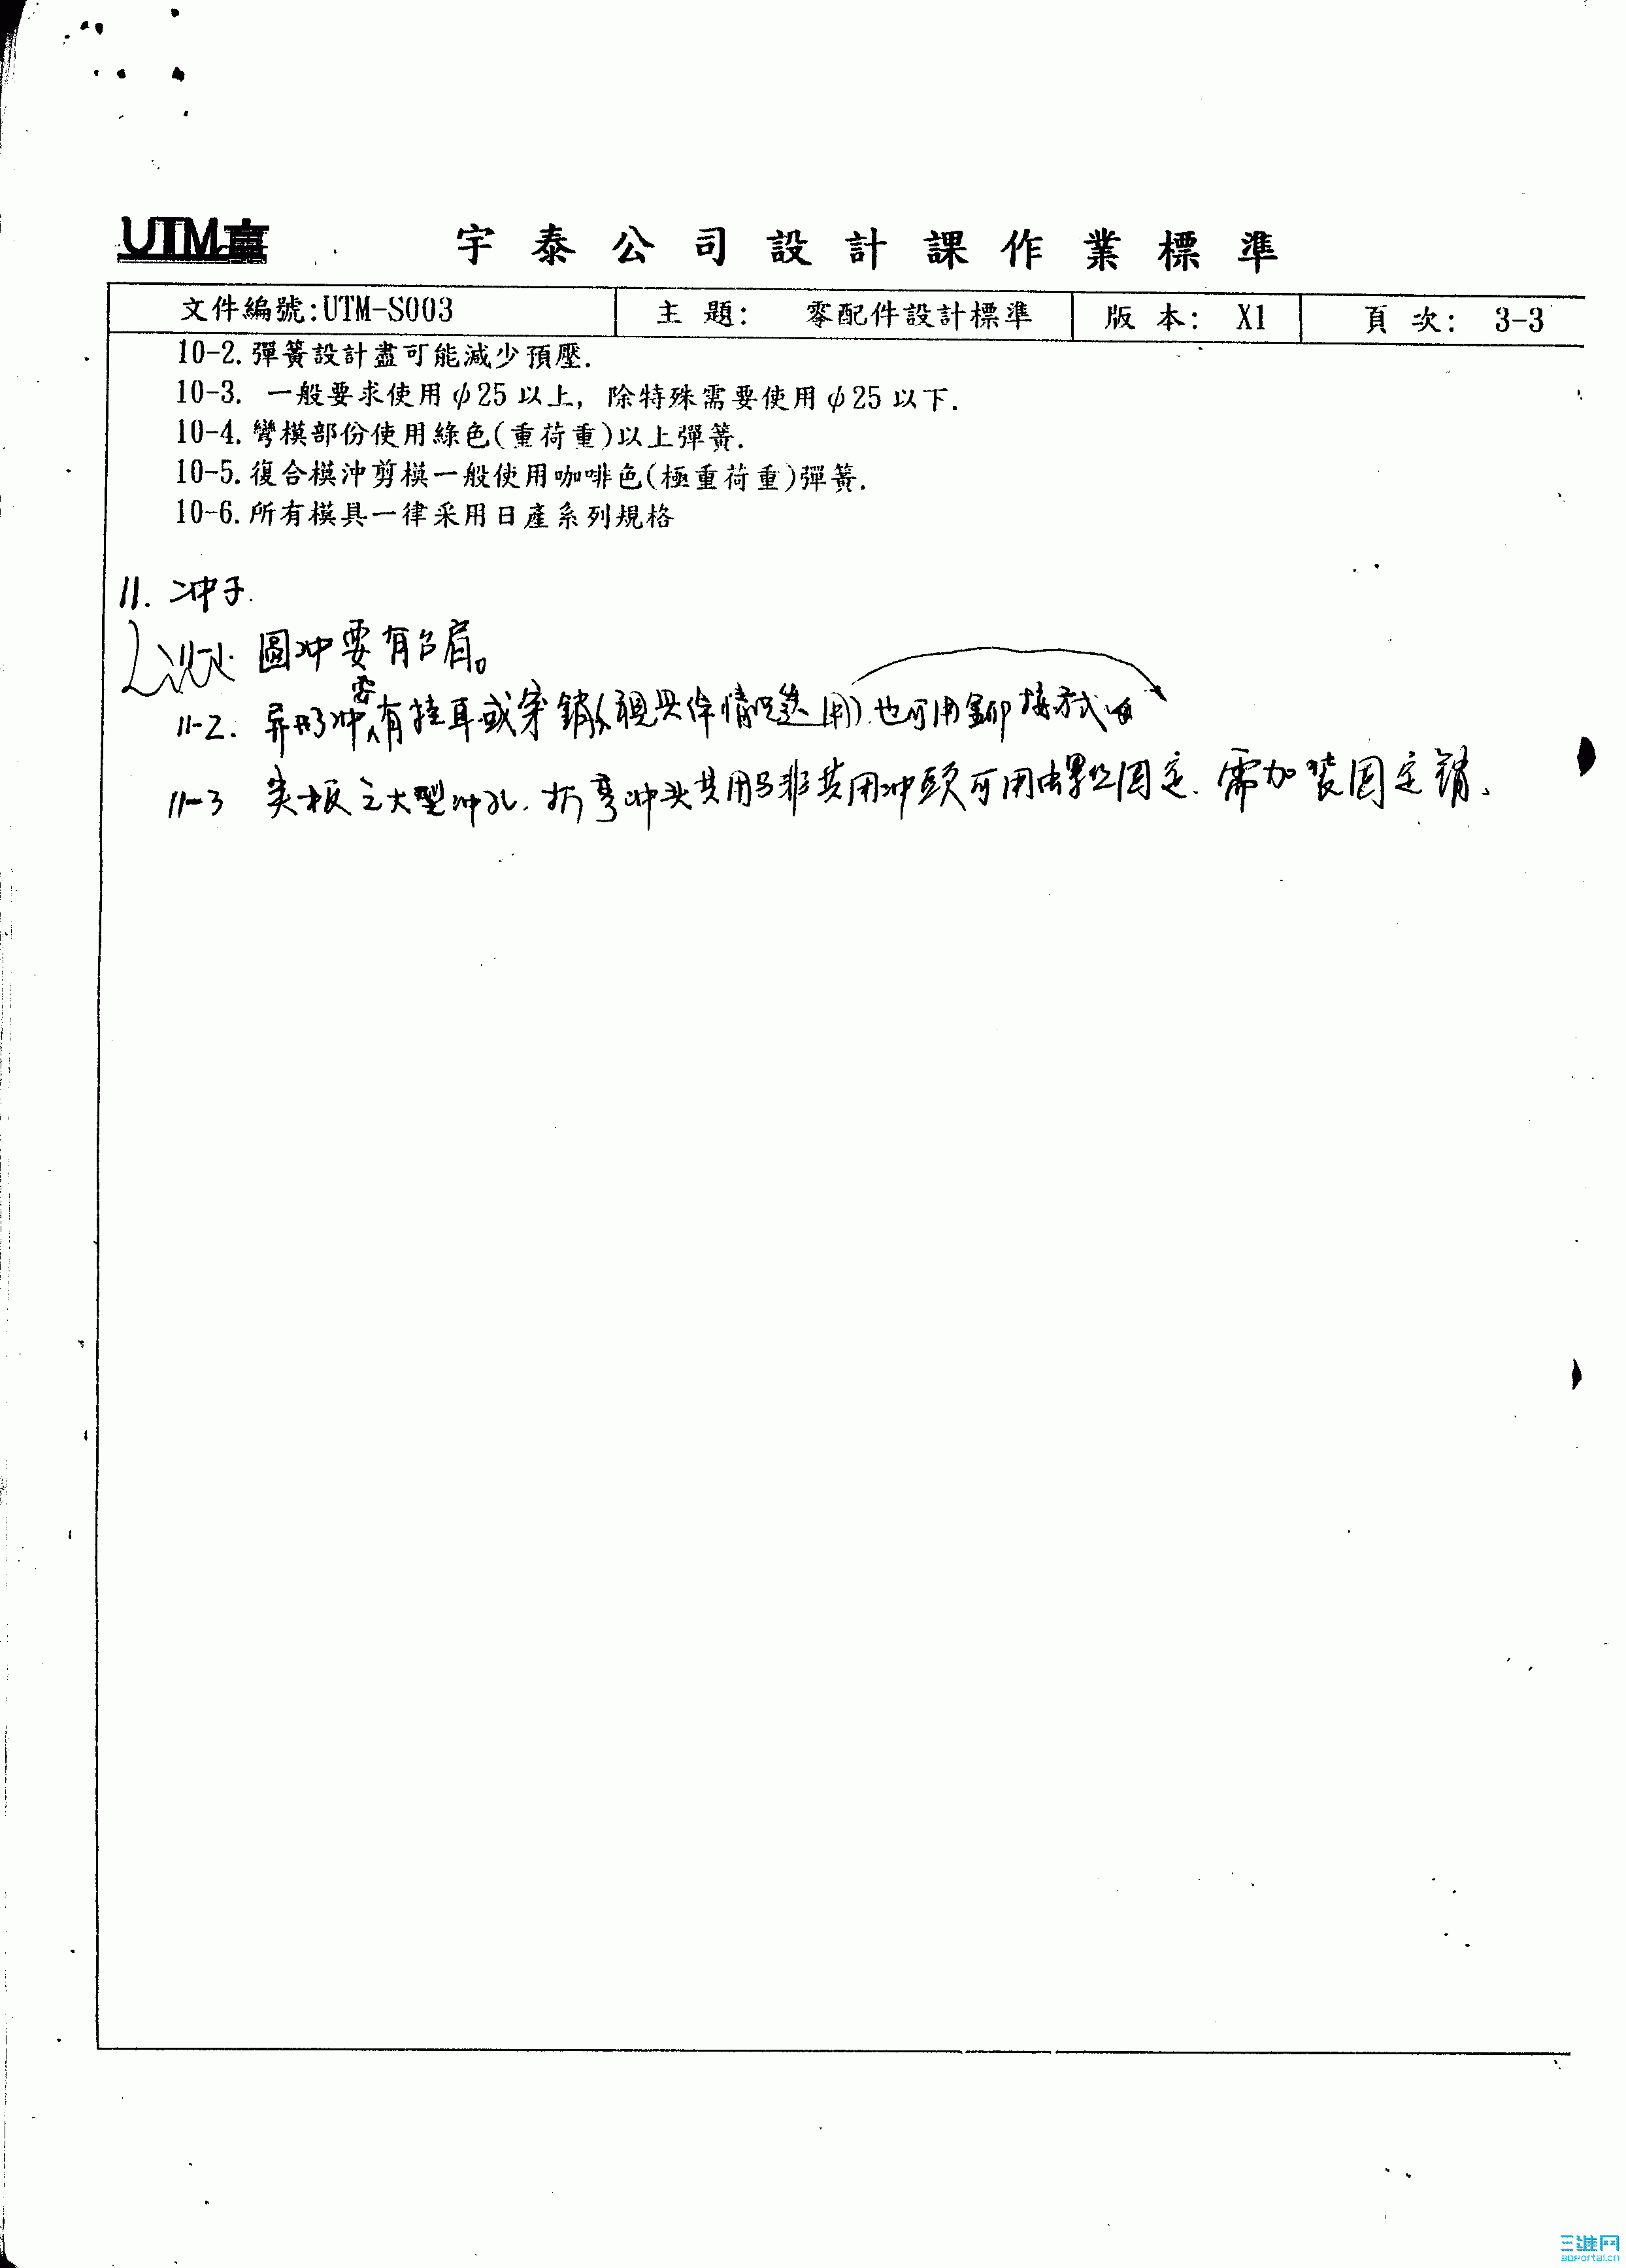 UTM
宇泰公司設計課作業標準
文件編號:UTM-S003 主題: 零配件設計標準 版本: X1 頁次: 3-3
10-2.彈簧設計盡可能減少預壓.
10-3. 一般要求使用φ25以上, 除特殊需要使用φ25以下.
10-4.彎模部份使用綠色(重荷重)以上彈簧.
10-5.復合模沖剪模一般使用咖啡色(極重荷重)彈簧.
10-6.所有模具一律采用日產系列規格
11. 冲子.
圓冲要有台肩。
11-2. 异形冲需有挂耳或穿銷(視具体情况選用).也可用鉚接方式
11-3 夹板之大型冲孔.折弯冲头共用与非共用冲頭可用螺丝固定.需加装固定銷.
三維网
3dportal.cn